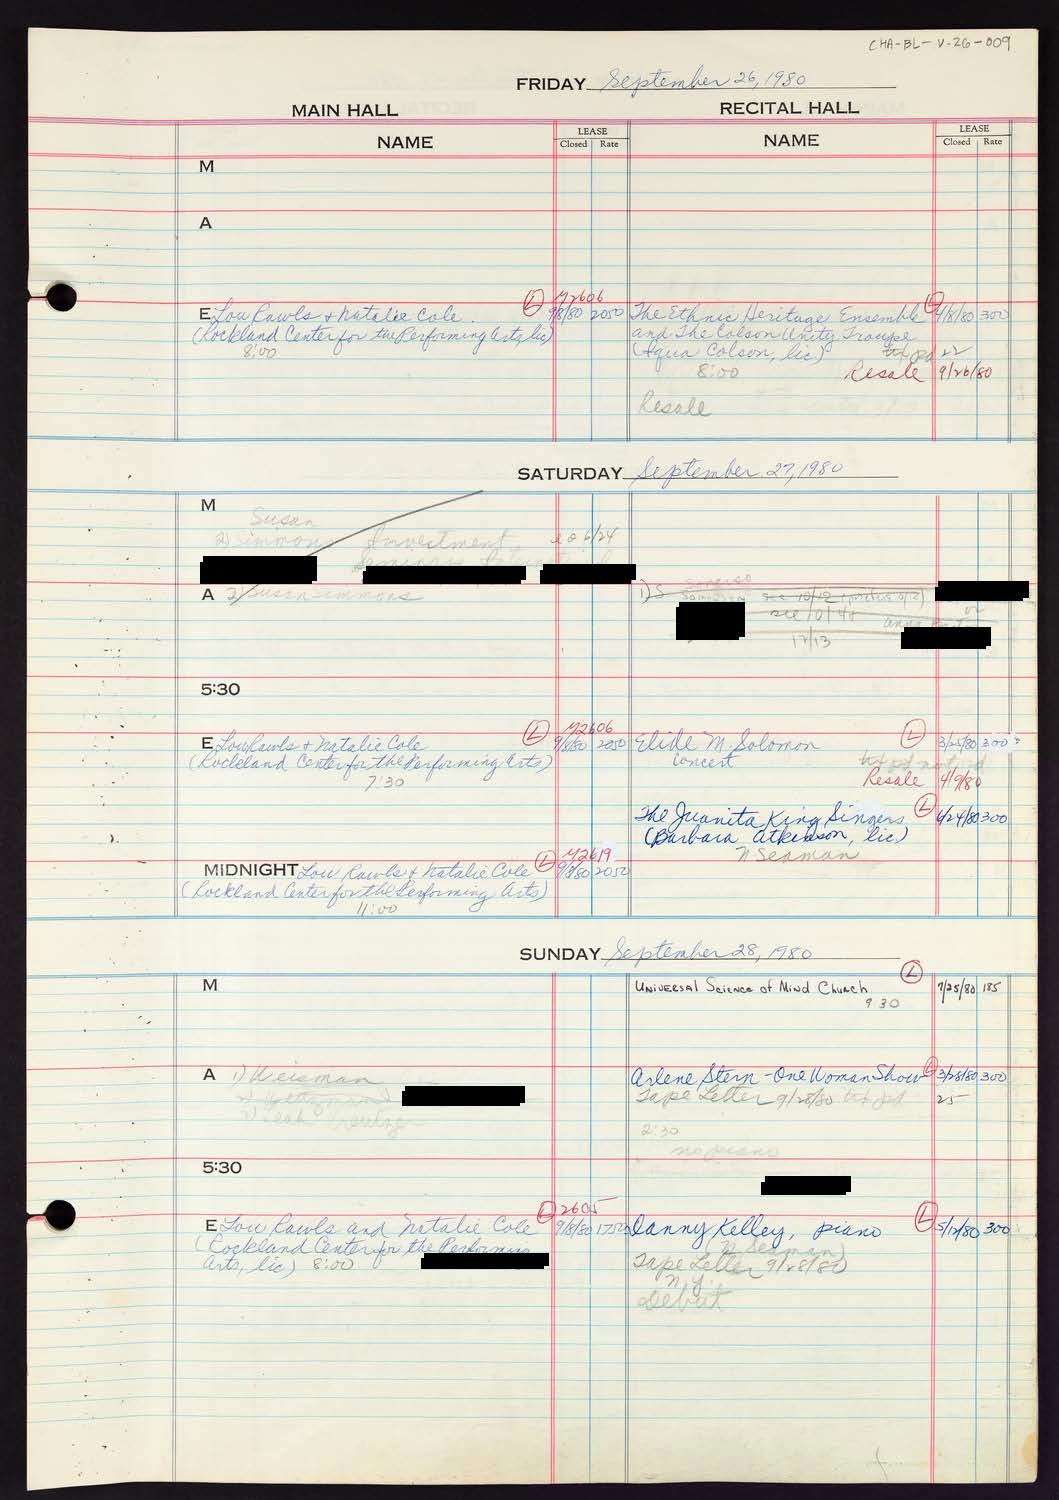 CHA-BL-V-26-009
FRIDAY September 26, 1980
MAIN HALL
RECITAL HALL
NAME
LEASE
Closed Rate
NAME
LEASE
Closed Rate
M
A
M2606
E Lou Rawls & Natalie Cole. L 9/8/80 2050
(Rockland Center for the Performing Arts, lic)
8:00
The Ethnic Heritage Ensemble L 4/8/80 300
and The Colson Unity Troupe
(Aqua Colson, lic) txpd 22
8:00 Resale 9/26/80
Resale
SATURDAY September 27, 1980
M
Susan
2) Simmons Investment 6/24
Seminars
A 2) Susan Simmons
1) S
see 10/12
see 10/
or
12/13
5:30
M2606
E Lou Rawls & Natalie Cole L 9/8/80 2050
(Rockland Center for the Performing Arts)
7:30
Elide M. Solomon L 3/25/80 300
Concert
Resale 4/9/80
The Juanita King Singers L 6/24/80 300
(Barbara Atkinson, lic)
N Seaman
M2619
MIDNIGHT Lou Rawls & Natalie Cole L 9/8/80 2050
(Rockland Center for the Performing Arts)
11:00
SUNDAY September 28, 1980
M
Universal Science of Mind Church L 7/25/80 185
9 30
A 1) Weisman
Arlene Stern - One Woman Show L 3/28/80 300
Tape Letter 9/28/80 txpd 25
2:30
no piano
5:30
2605
E Lou Rawls and Natalie Cole L 9/8/80 1750
(Rockland Center for the Performing
Arts, lic) 8:00
Danny Kelley, piano L 5/12/80 300
N Seaman)
Tape Letter 9/28/80
N.Y.
Debut